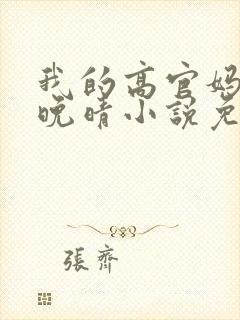 我的高官妈
晚晴小说免
張齊